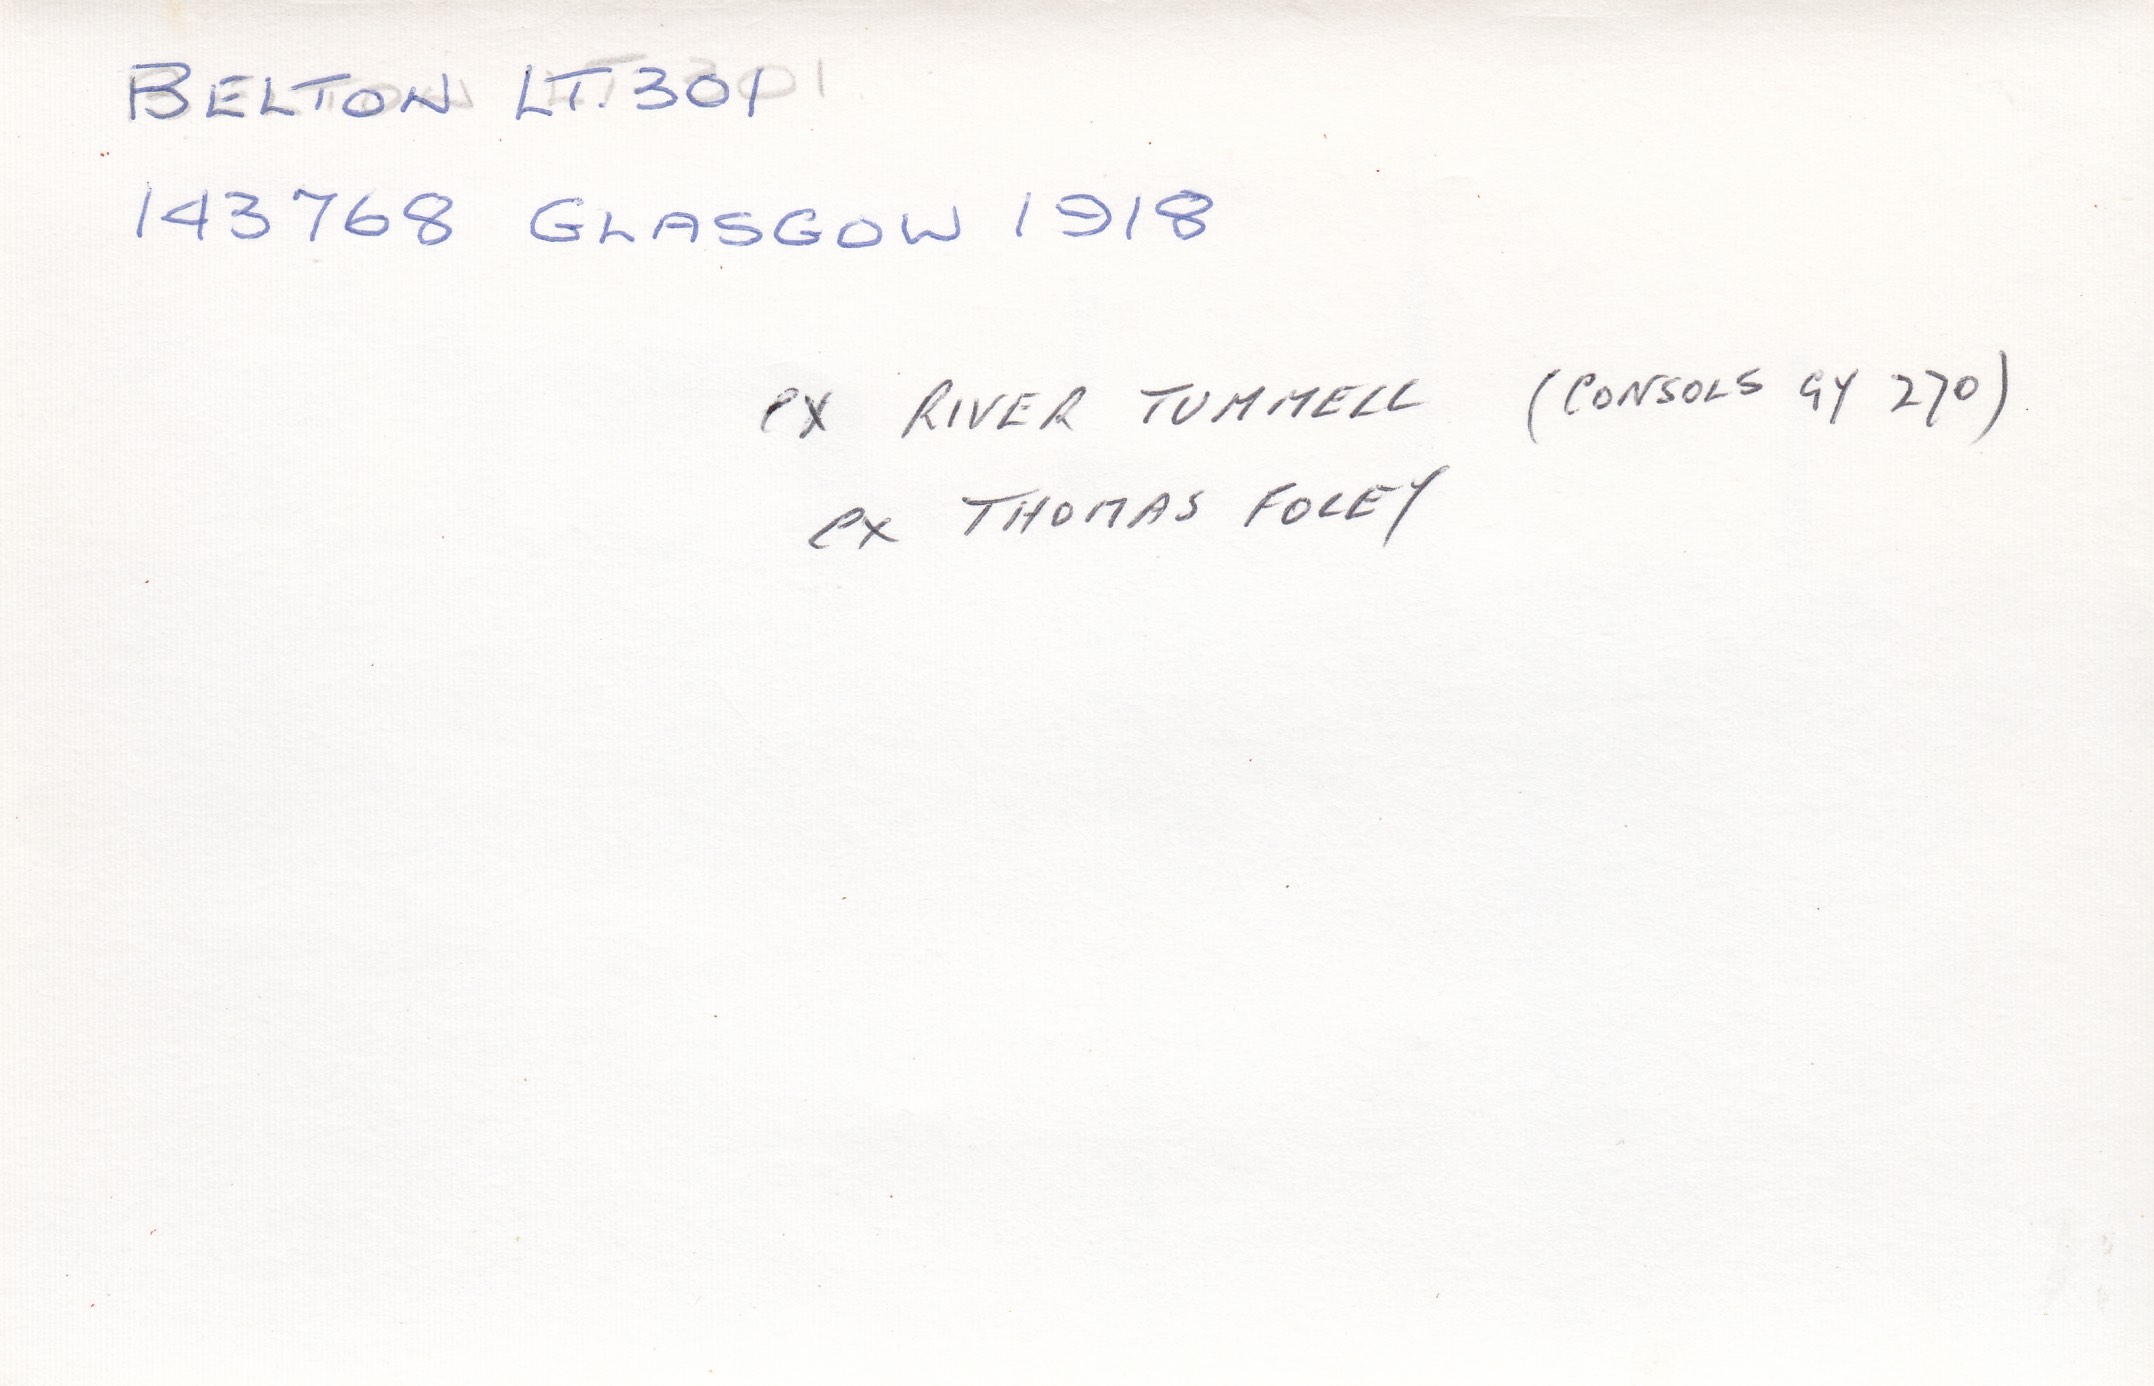 BELTON LT.301
143768 GLASGOW 1918
ex RIVER TUMMELL (CONSOLS GY 270)
ex THOMAS FOLEY